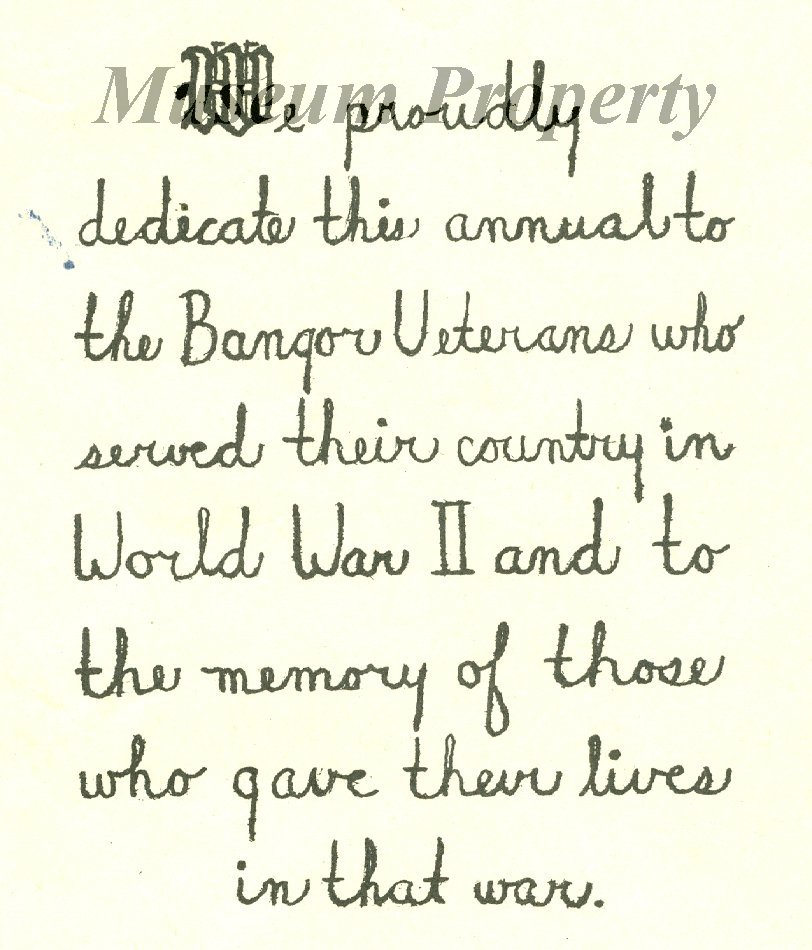 Museum Property
We proudly
dedicate this annual to
the Bangor Veterans who
served their country in
World War II and to
the memory of those
who gave their lives
in that war.